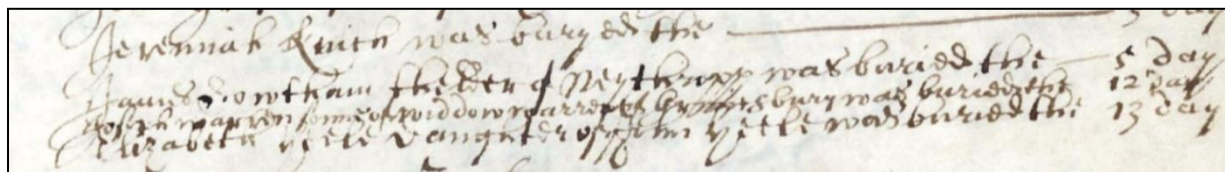 Jeremiah Keith was buryed the 5 day
James Bowtham the elder of Neythropp was buried the 5 day
Joseph Warren sonne of widdow Warren was buried the 12 day
Elizabeth Yeele daughter of John Yeele was buried the 13 day